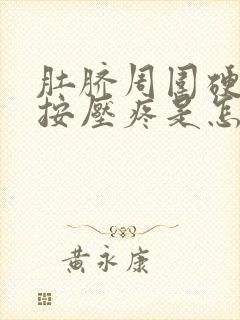 肚脐周围硬
按壓疼是怎
黄永康